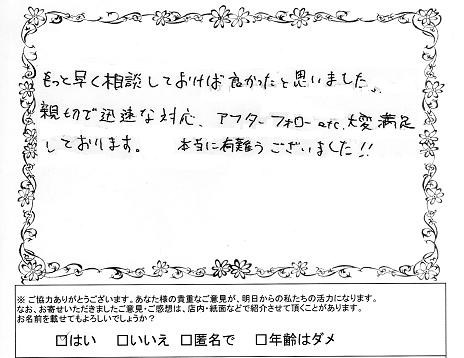 もっと早く相談しておけば良かったと思いました。
親切で迅速な対応、アフターフォローetc、大変満足
しております。 本当に有難うございました!!
※ご協力ありがとうございます。あなた様の貴重なご意見が、明日からの私たちの活力になります。
なお、お寄せいただきましたご意見・ご感想は、店内・紙面などで紹介させて頂くことがあります。
お名前を載せてもよろしいでしょうか?
☑はい □いいえ □匿名で □年齢はダメ